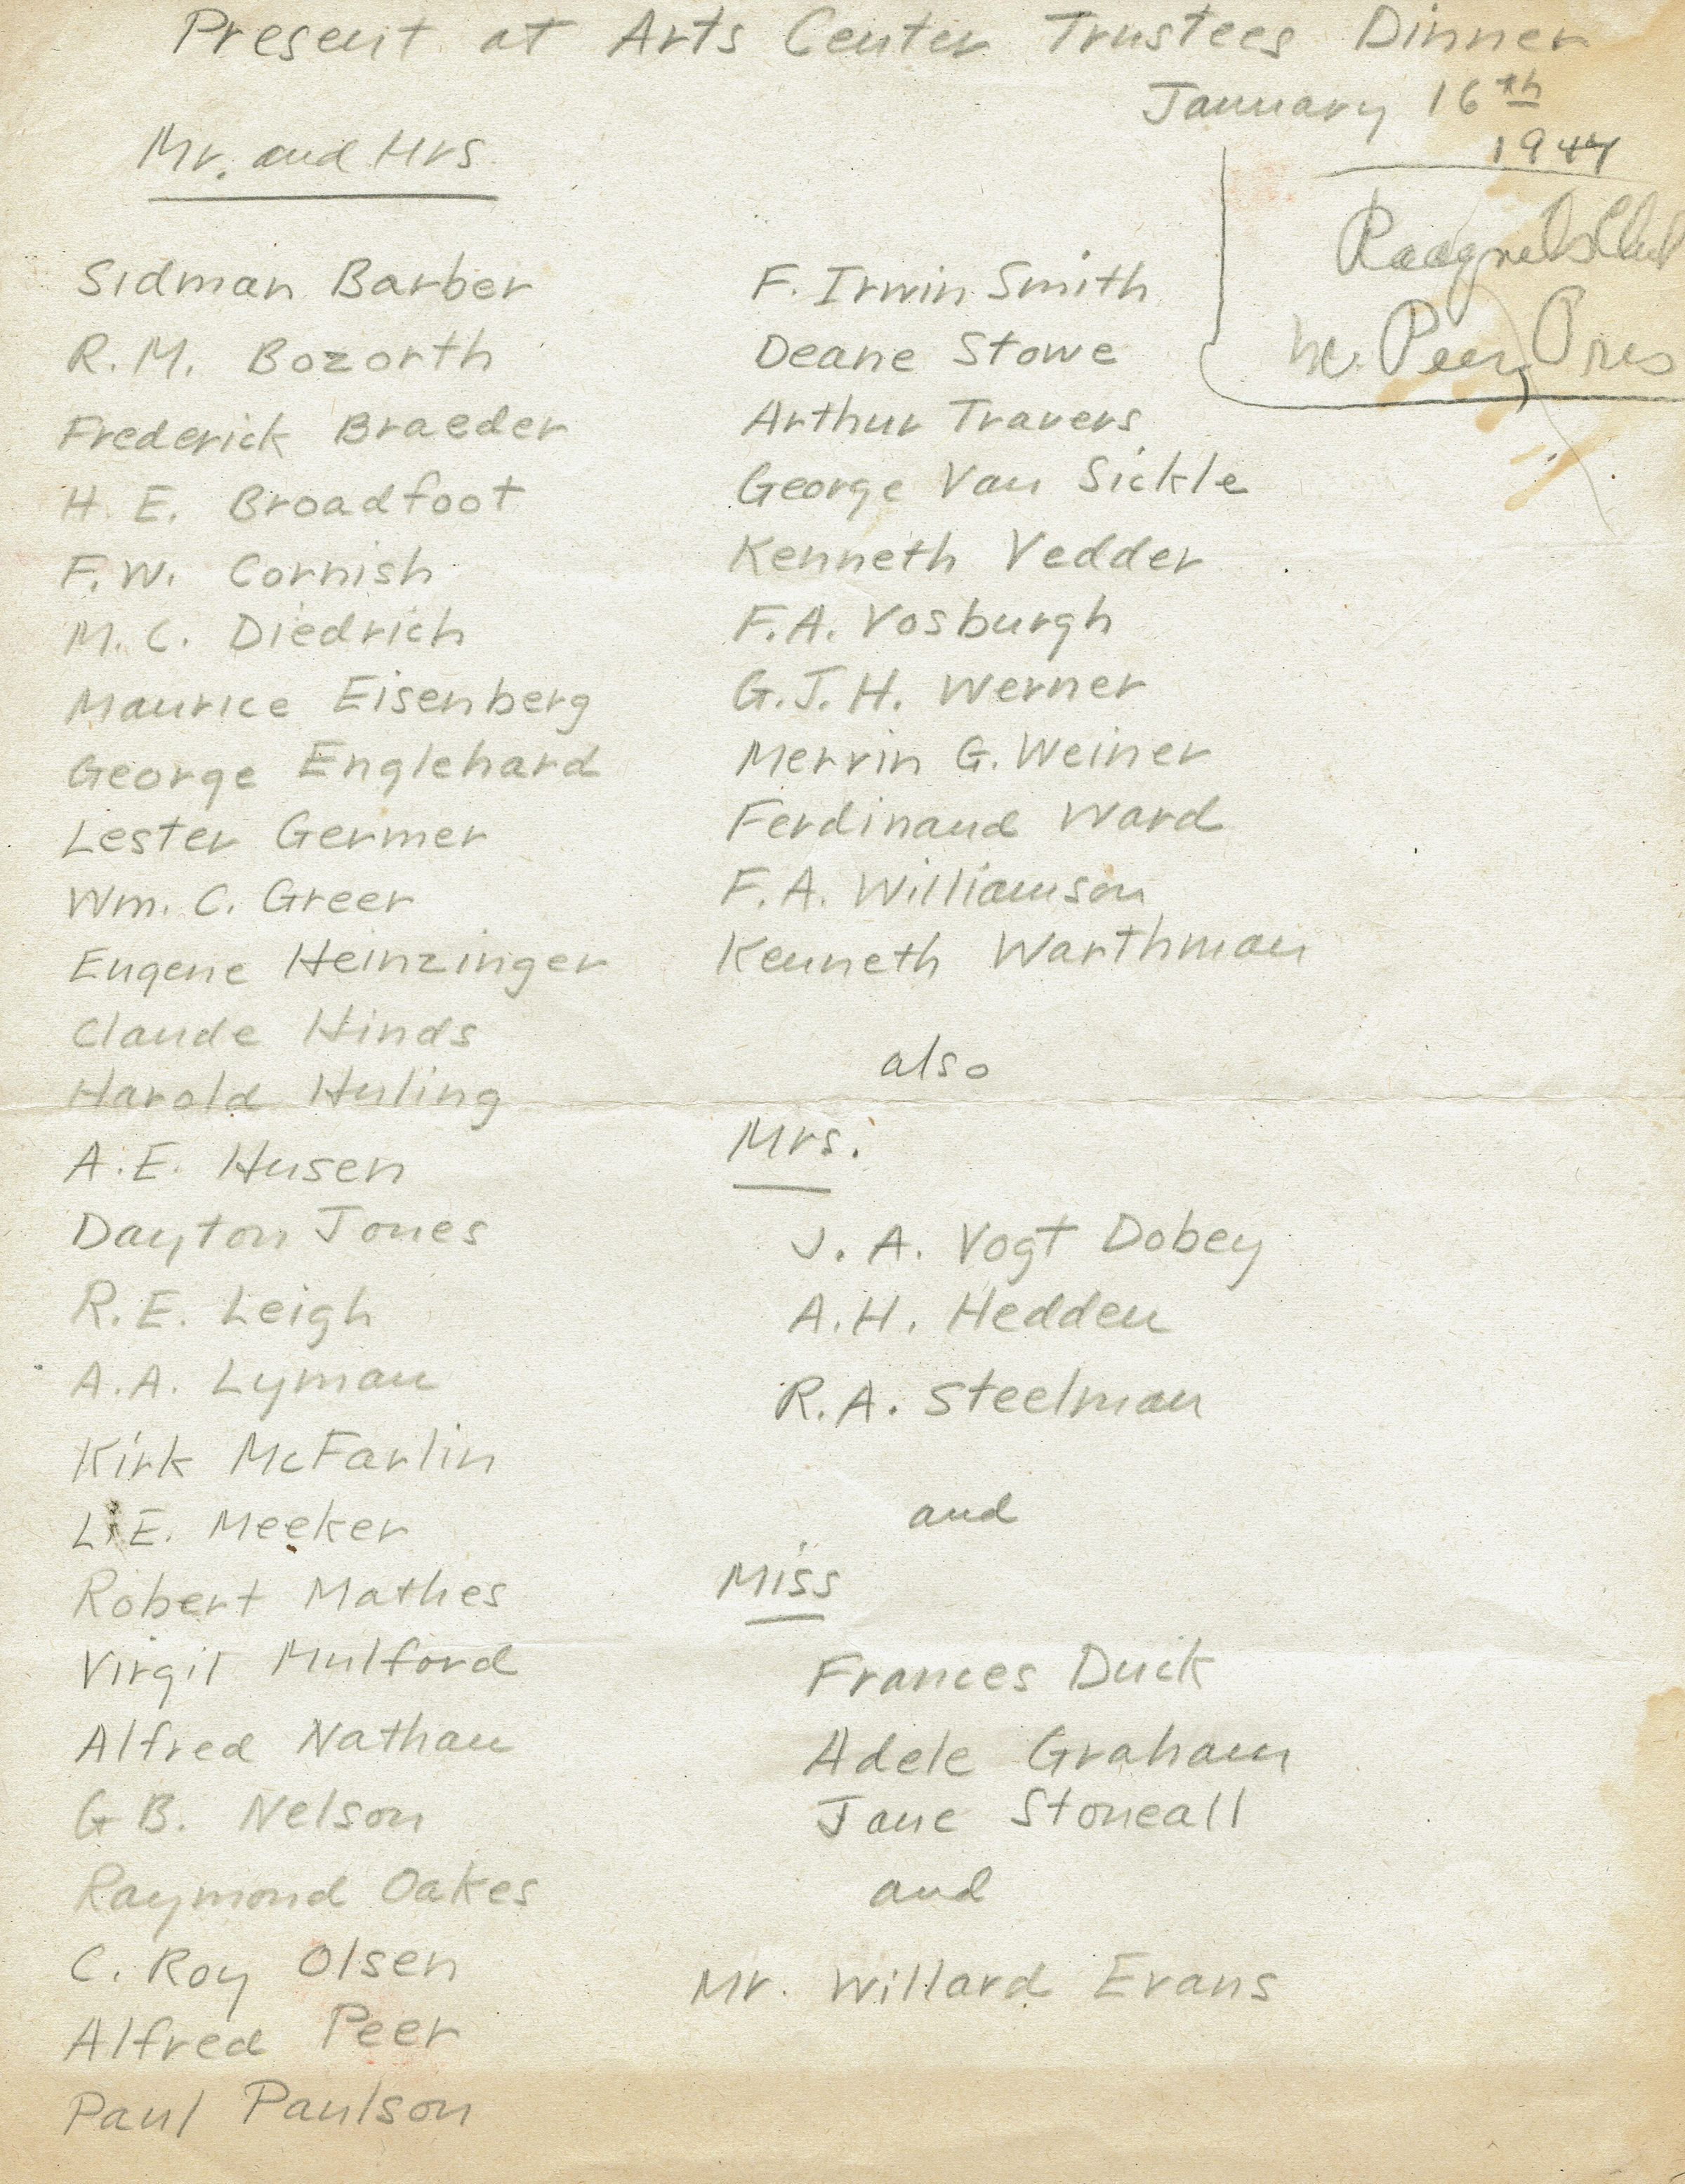 Present at Arts Center Trustees Dinner
January 16th
1947
Mr. and Mrs
Sidman Barber
R.M. Bozorth
Frederick Braeder
H. E. Broadfoot
F.W. Cornish
M. C. Diedrich
Maurice Eisenberg
George Englehard
Lester Germer
Wm. C. Greer
Eugene Heinzinger
Claude Hinds
Harold Huling
A.E. Husen
Dayton Jones
R.E. Leigh
A.A. Lyman
Kirk McFarlin
L.E. Meeker
Robert Mathes
Virgil Mulford
Alfred Nathan
G B. Nelson
Raymond Oakes
C. Roy Olsen
Alfred Peer
Paul Paulson
F. Irwin Smith
Deane Stowe
Arthur Travers
George Van Sickle
Kenneth Vedder
F.A. Vosburgh
G.J.H. Werner
Mervin G. Weiner
Ferdinand Ward
F.A. Williamson
Kenneth Warthman
also
Mrs.
J. A. Vogt Dobey
A.H. Hedden
R.A. Steelman
and
Miss
Frances Duck
Adele Graham
Jane Stoneall
and
Mr. Willard Evans
Peer, Pres